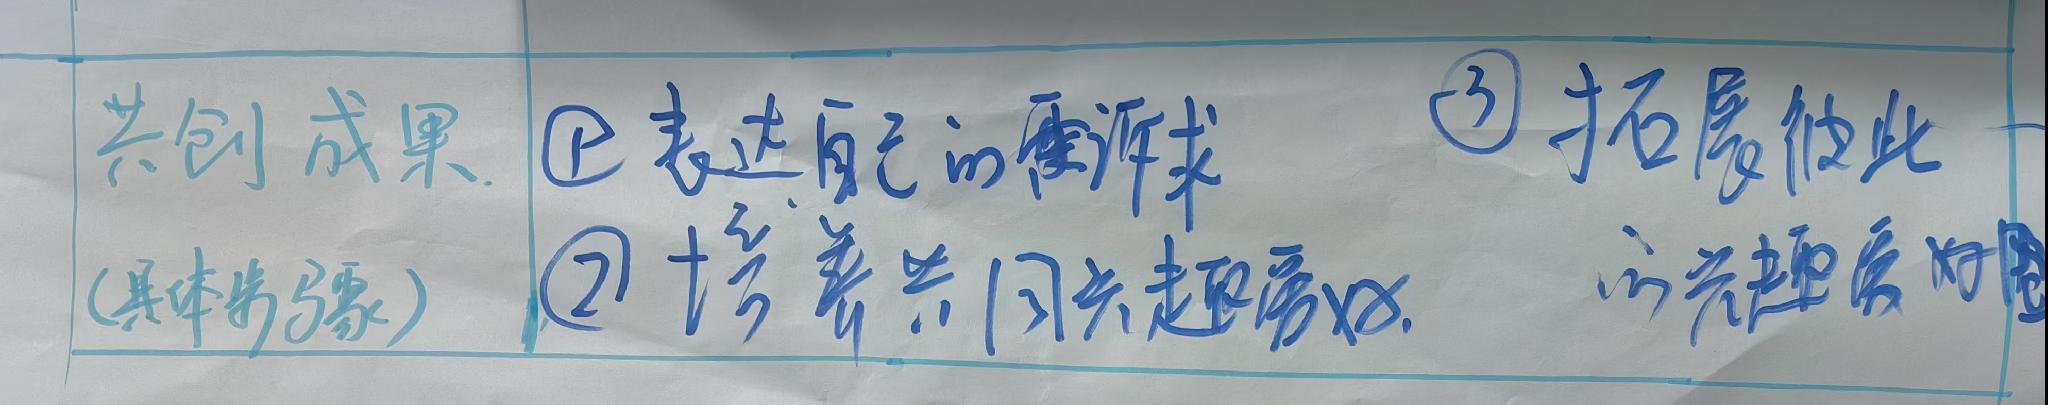 共创成果.
(具体步骤)
① 表达自己的需诉求
② 培养共同兴趣爱好.
③ 拓展彼此
的兴趣爱好圈